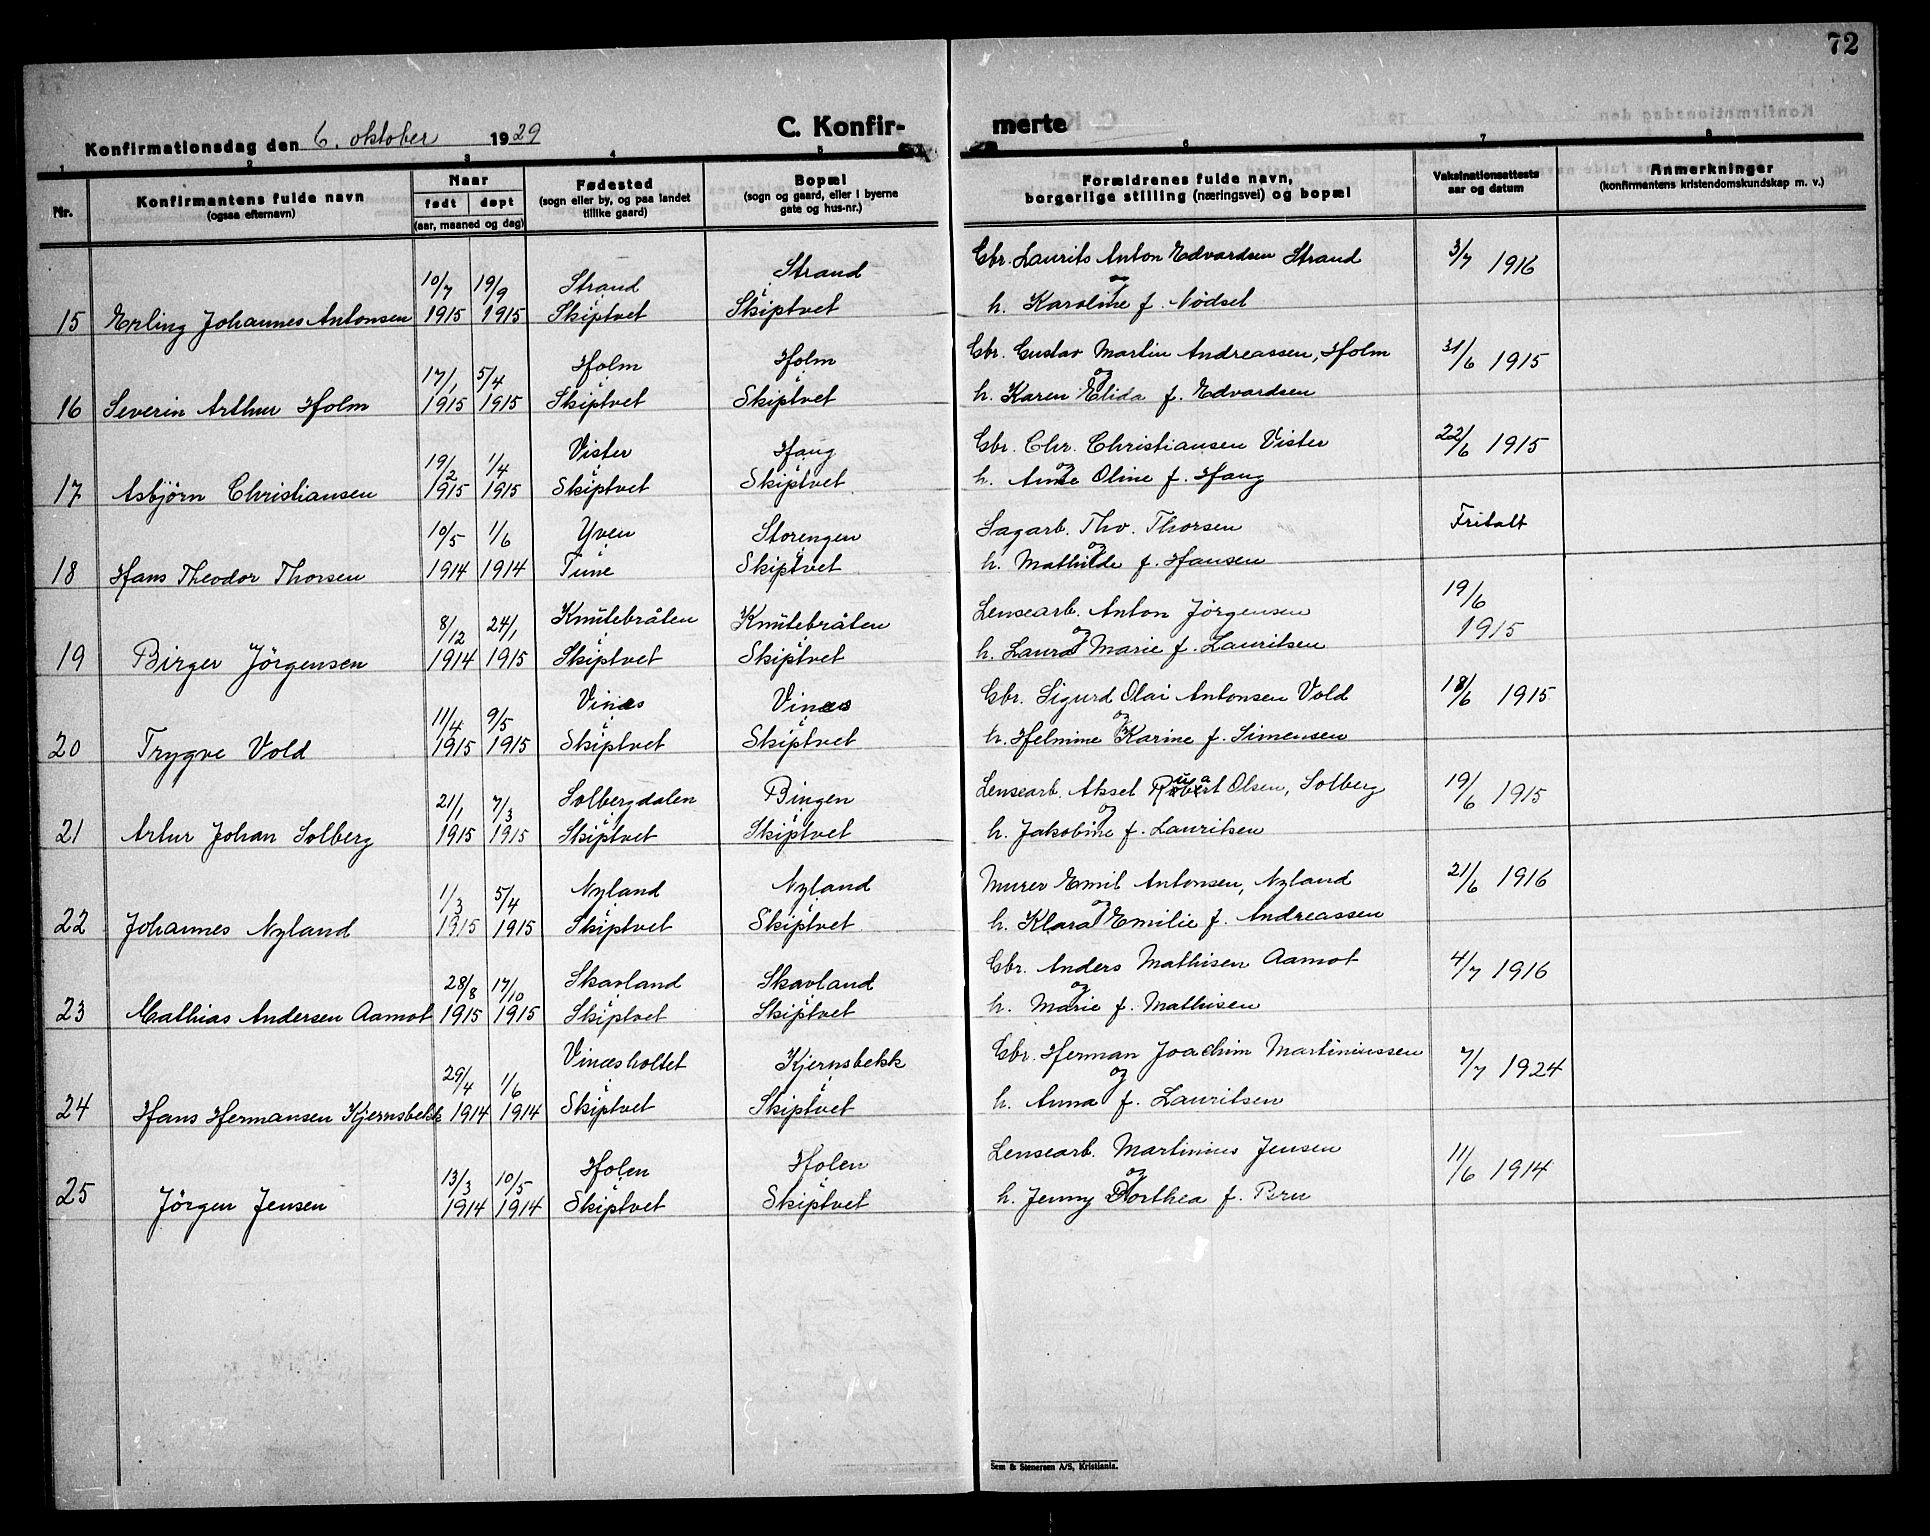 72
Konfirmationsdag den 6. oktober 1929
C. Konfir-
merte
1 2 3 4 5 6 7 8
Nr.
Konfirmantens fulde navn
(ogsaa efternavn)
Naar
født døpt
(aar, maaned og dag)
Fødested
(sogn eller by, og paa landet
tillike gaard)
Bopæl
(sogn og gaard, eller i byerne
gate og hus-nr.)
Forældrenes fulde navn,
borgerlige stilling (næringsvei) og bopæl
Vaksinationsattests
aar og datum
Anmerkninger
(konfirmantens kristendomskundskap m. v.)
10/7 19/9 Strand Strand Gbr. Laurits Anton Edvardsen Strand 3/7 1916
og
15 Erling Johannes Antonsen 1915 1915 Skiptvet Skiptvet h. Karoline f. Nödset
17/1 5/4 Holm Holm Gbr. Gustav Martin Andreassen, Holm 31/6 1915
og
16 Severin Arthur Holm 1915 1915 Skiptvet Skiptvet h. Karen Elida f. Edvardsen
19/2 1/4 Vister Haug Gbr. Chr. Christiansen Vister 22/6 1915
og
17 Asbjörn Christiansen 1915 1915 Skiptvet Skiptvet h. Anne Oline f. Haug
10/5 1/6 Yven Storengen Sagarb. Thv. Thorsen Fritalt
og
18 Hans Theodor Thorsen 1914 1914 Tune Skiptvet h. Mathilde f. Hansen
8/12 24/1 Knutebråten Knutebråten Lensearb. Anton Jörgensen 19/6
og 1915
19 Birger Jörgensen 1914 1915 Skiptvet Skiptvet h. Laura Marie f. Lauritsen
11/4 9/5 Vinæs Vinæs Gbr. Sigurd Olai Antonsen Vold 18/6 1915
og
20 Trygve Vold 1915 1915 Skiptvet Skiptvet h. Helmine Karine f. Simensen
21/1 7/3 Solbergdalen Bingen Lensearb. Aksel Olsen, Solberg 19/6 1915
og
21 Artur Johan Solberg 1915 1915 Skiptvet Skiptvet h. Jakobine f. Lauritsen
1/3 5/4 Nyland Nyland Murer Emil Antonsen, Nyland 21/6 1916
og
22 Johannes Nyland 1915 1915 Skiptvet Skiptvet h. Klara Emilie f. Andreassen
28/8 17/10 Skavland Skavland Gbr. Anders Mathisen Aamot 4/7 1916
og
23 Mathias Andersen Aamot 1915 1915 Skiptvet Skiptvet h. Marie f. Mathisen
29/4 1/6 Vinæsholtet Kjernsbekk Gbr. Herman Joachim Martiniussen 7/7 1924
og
24 Hans Hermansen Kjernsbekk 1914 1914 Skiptvet Skiptvet h. Anna f. Lauritsen
13/3 10/5 Holen Holen Lensearb. Martinius Jensen 11/6 1914
og
25 Jörgen Jensen 1914 1914 Skiptvet Skiptvet h. Jenny Dorthea f. Bru
Sem & Stenersen A/S, Kristiania.